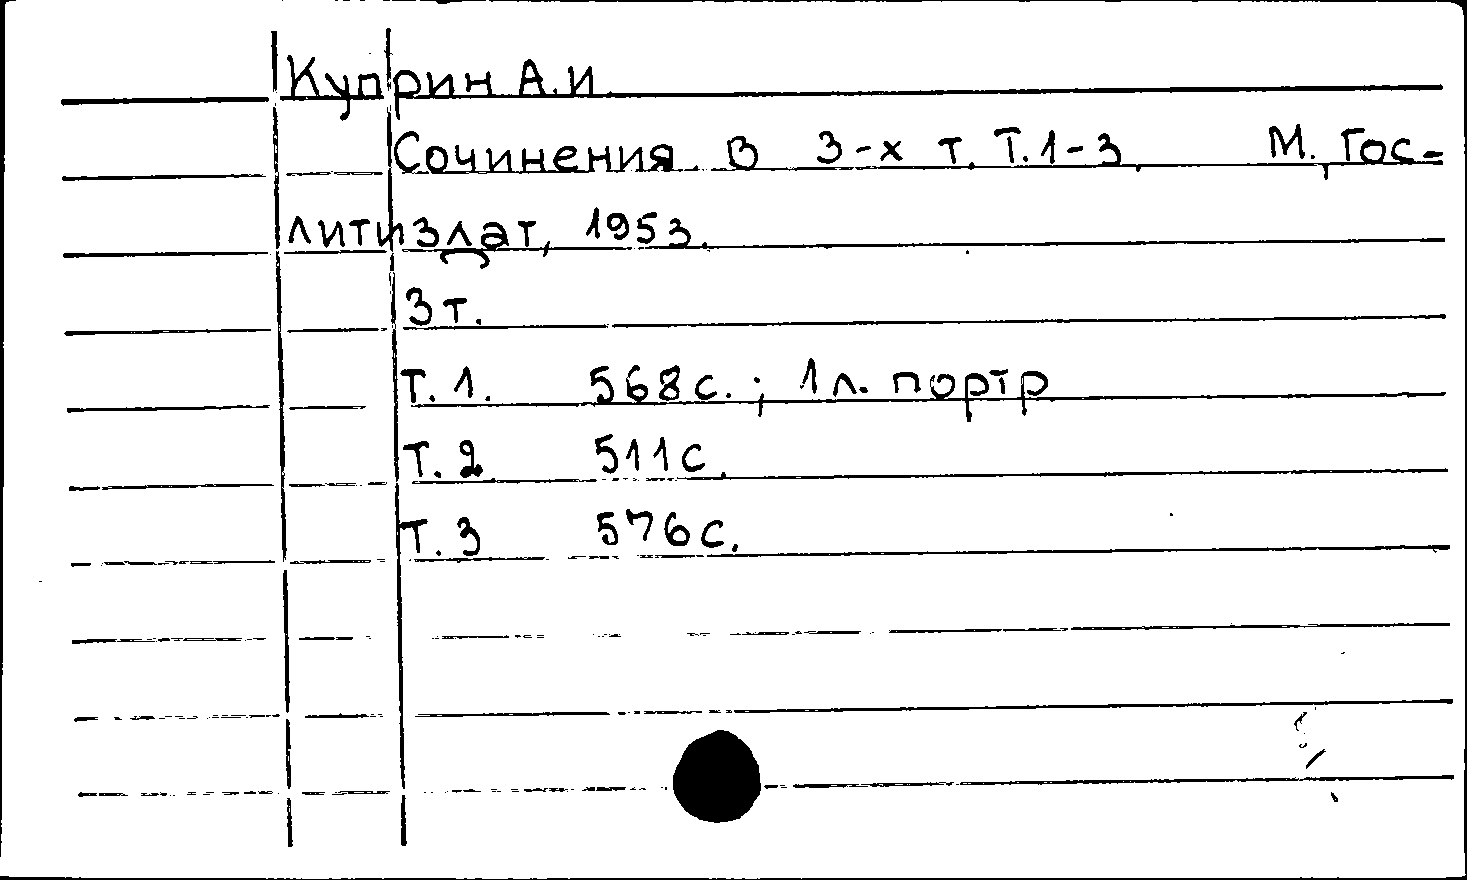 Куприн А.И
Сочинения. В 3-х т. Т.1-3. М., Гос-
литиздат, 1953.
3 т.
Т. 1. 568с.; 1 л. портр
Т. 2 511с.
Т. 3 576с.